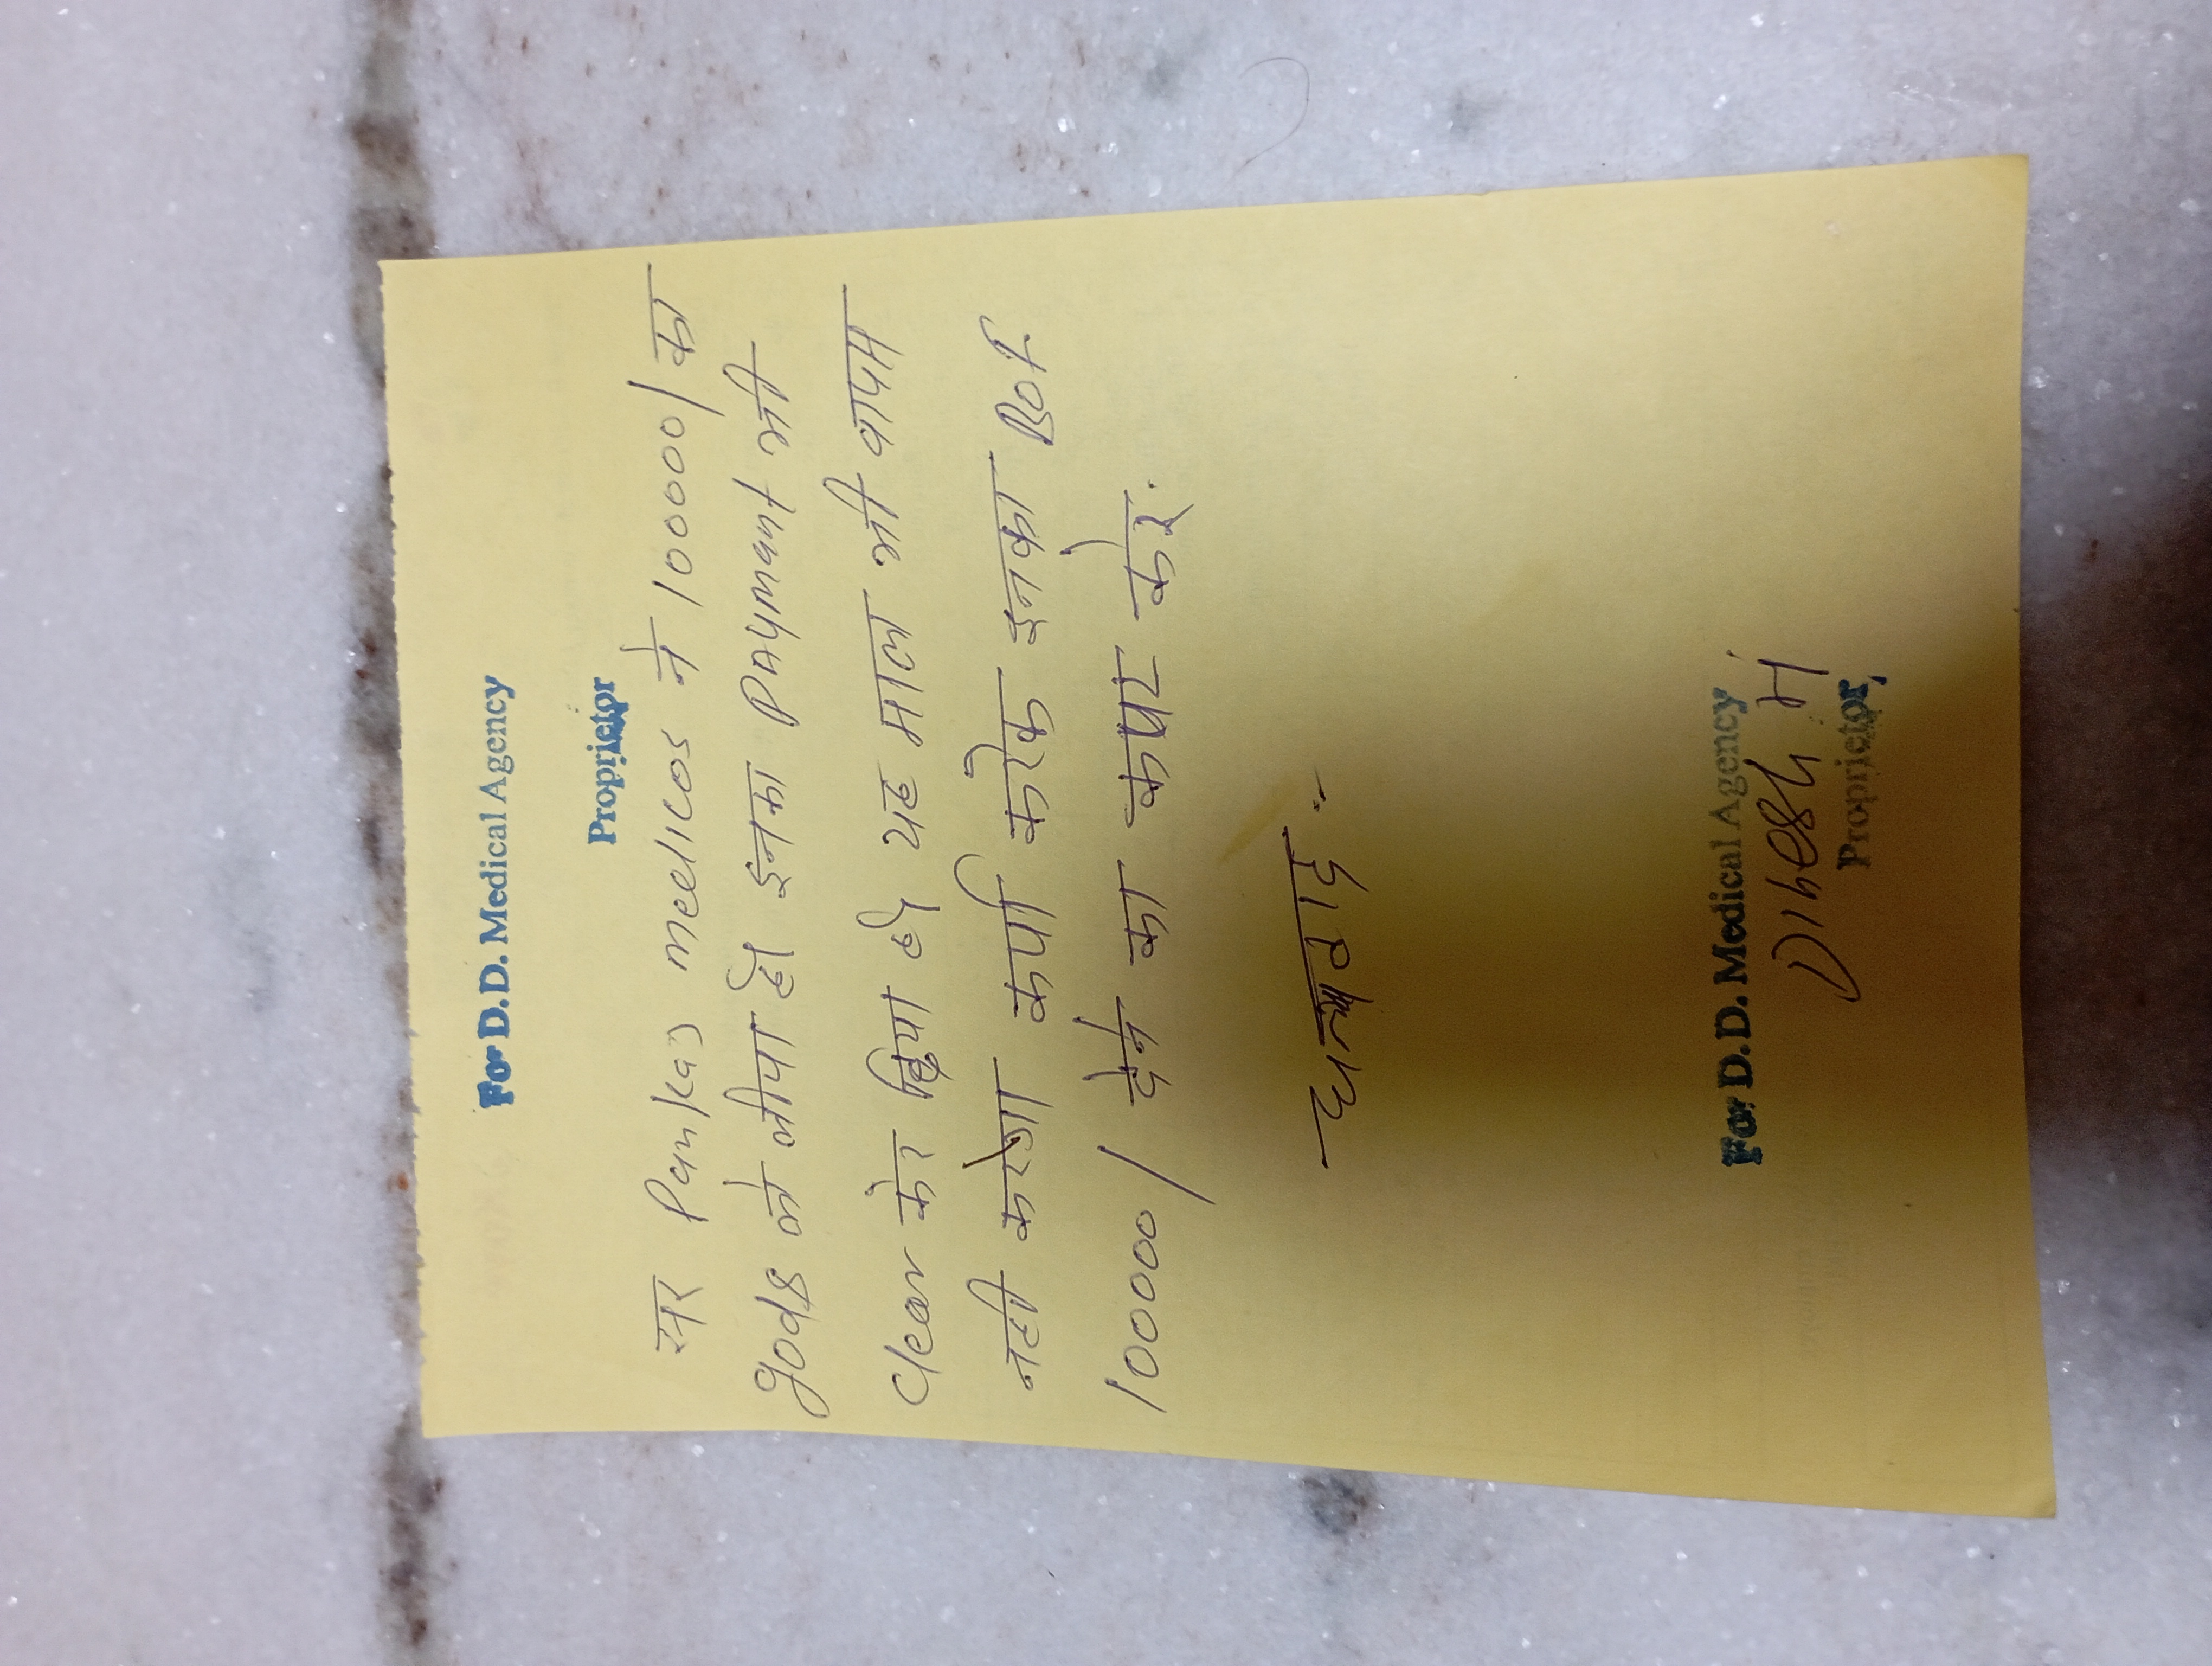 For D.D. Medical Agency
Proprietor
सर Pankaj medicos ने 100000/ का
goods ले लीया है। इनका PAYmant भी
Clear कर दिया है, यह माल भी वापस
नही करेगा कर्पा करके इनका
100000/ देने का कष्ट करे.
धन्यवाद :-
For D.D. Medical Agency
Dinesh
Proprietor